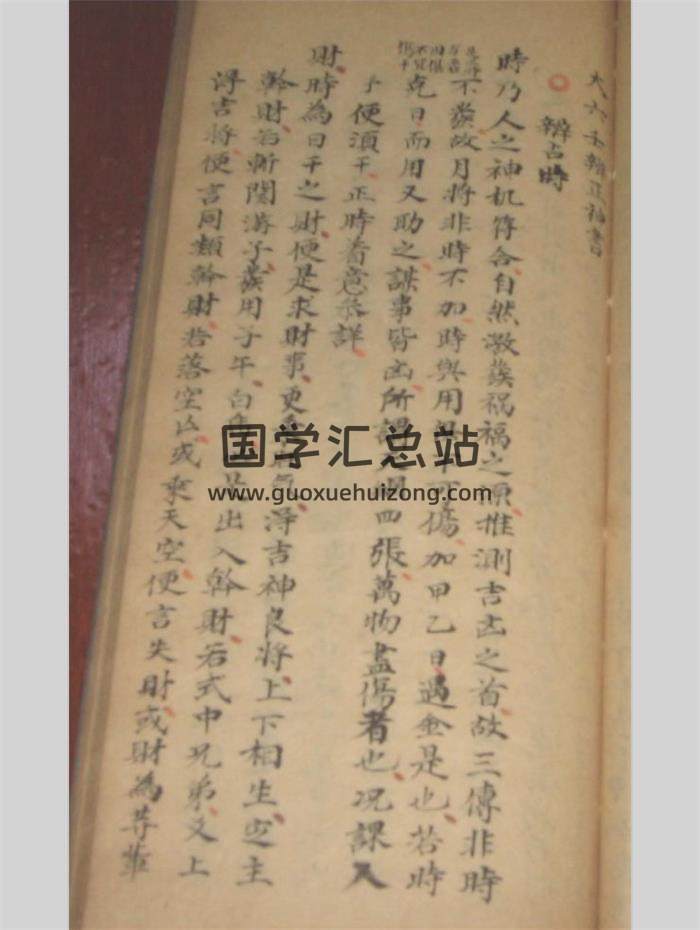 大六壬辨正神書
辨占時
時乃人之神机符合自然激發禍福之源推測吉凶之首故三傳非時
不發故月將非時不加時與用加甲乙日遇金是也若時
克日而用又助之謀事皆凶所謂四張萬物盡傷者也况課入
干便須干正時着意參詳
財時為日干之財便是求財事更得吉神良將上下相生定主
幹財若斬関發用子午白出入幹財若式中兄弟又上
得吉將便言同類幹財若落空亡或乘天空便言失財或財為
国学汇总站
www.guoxuehuizong.com